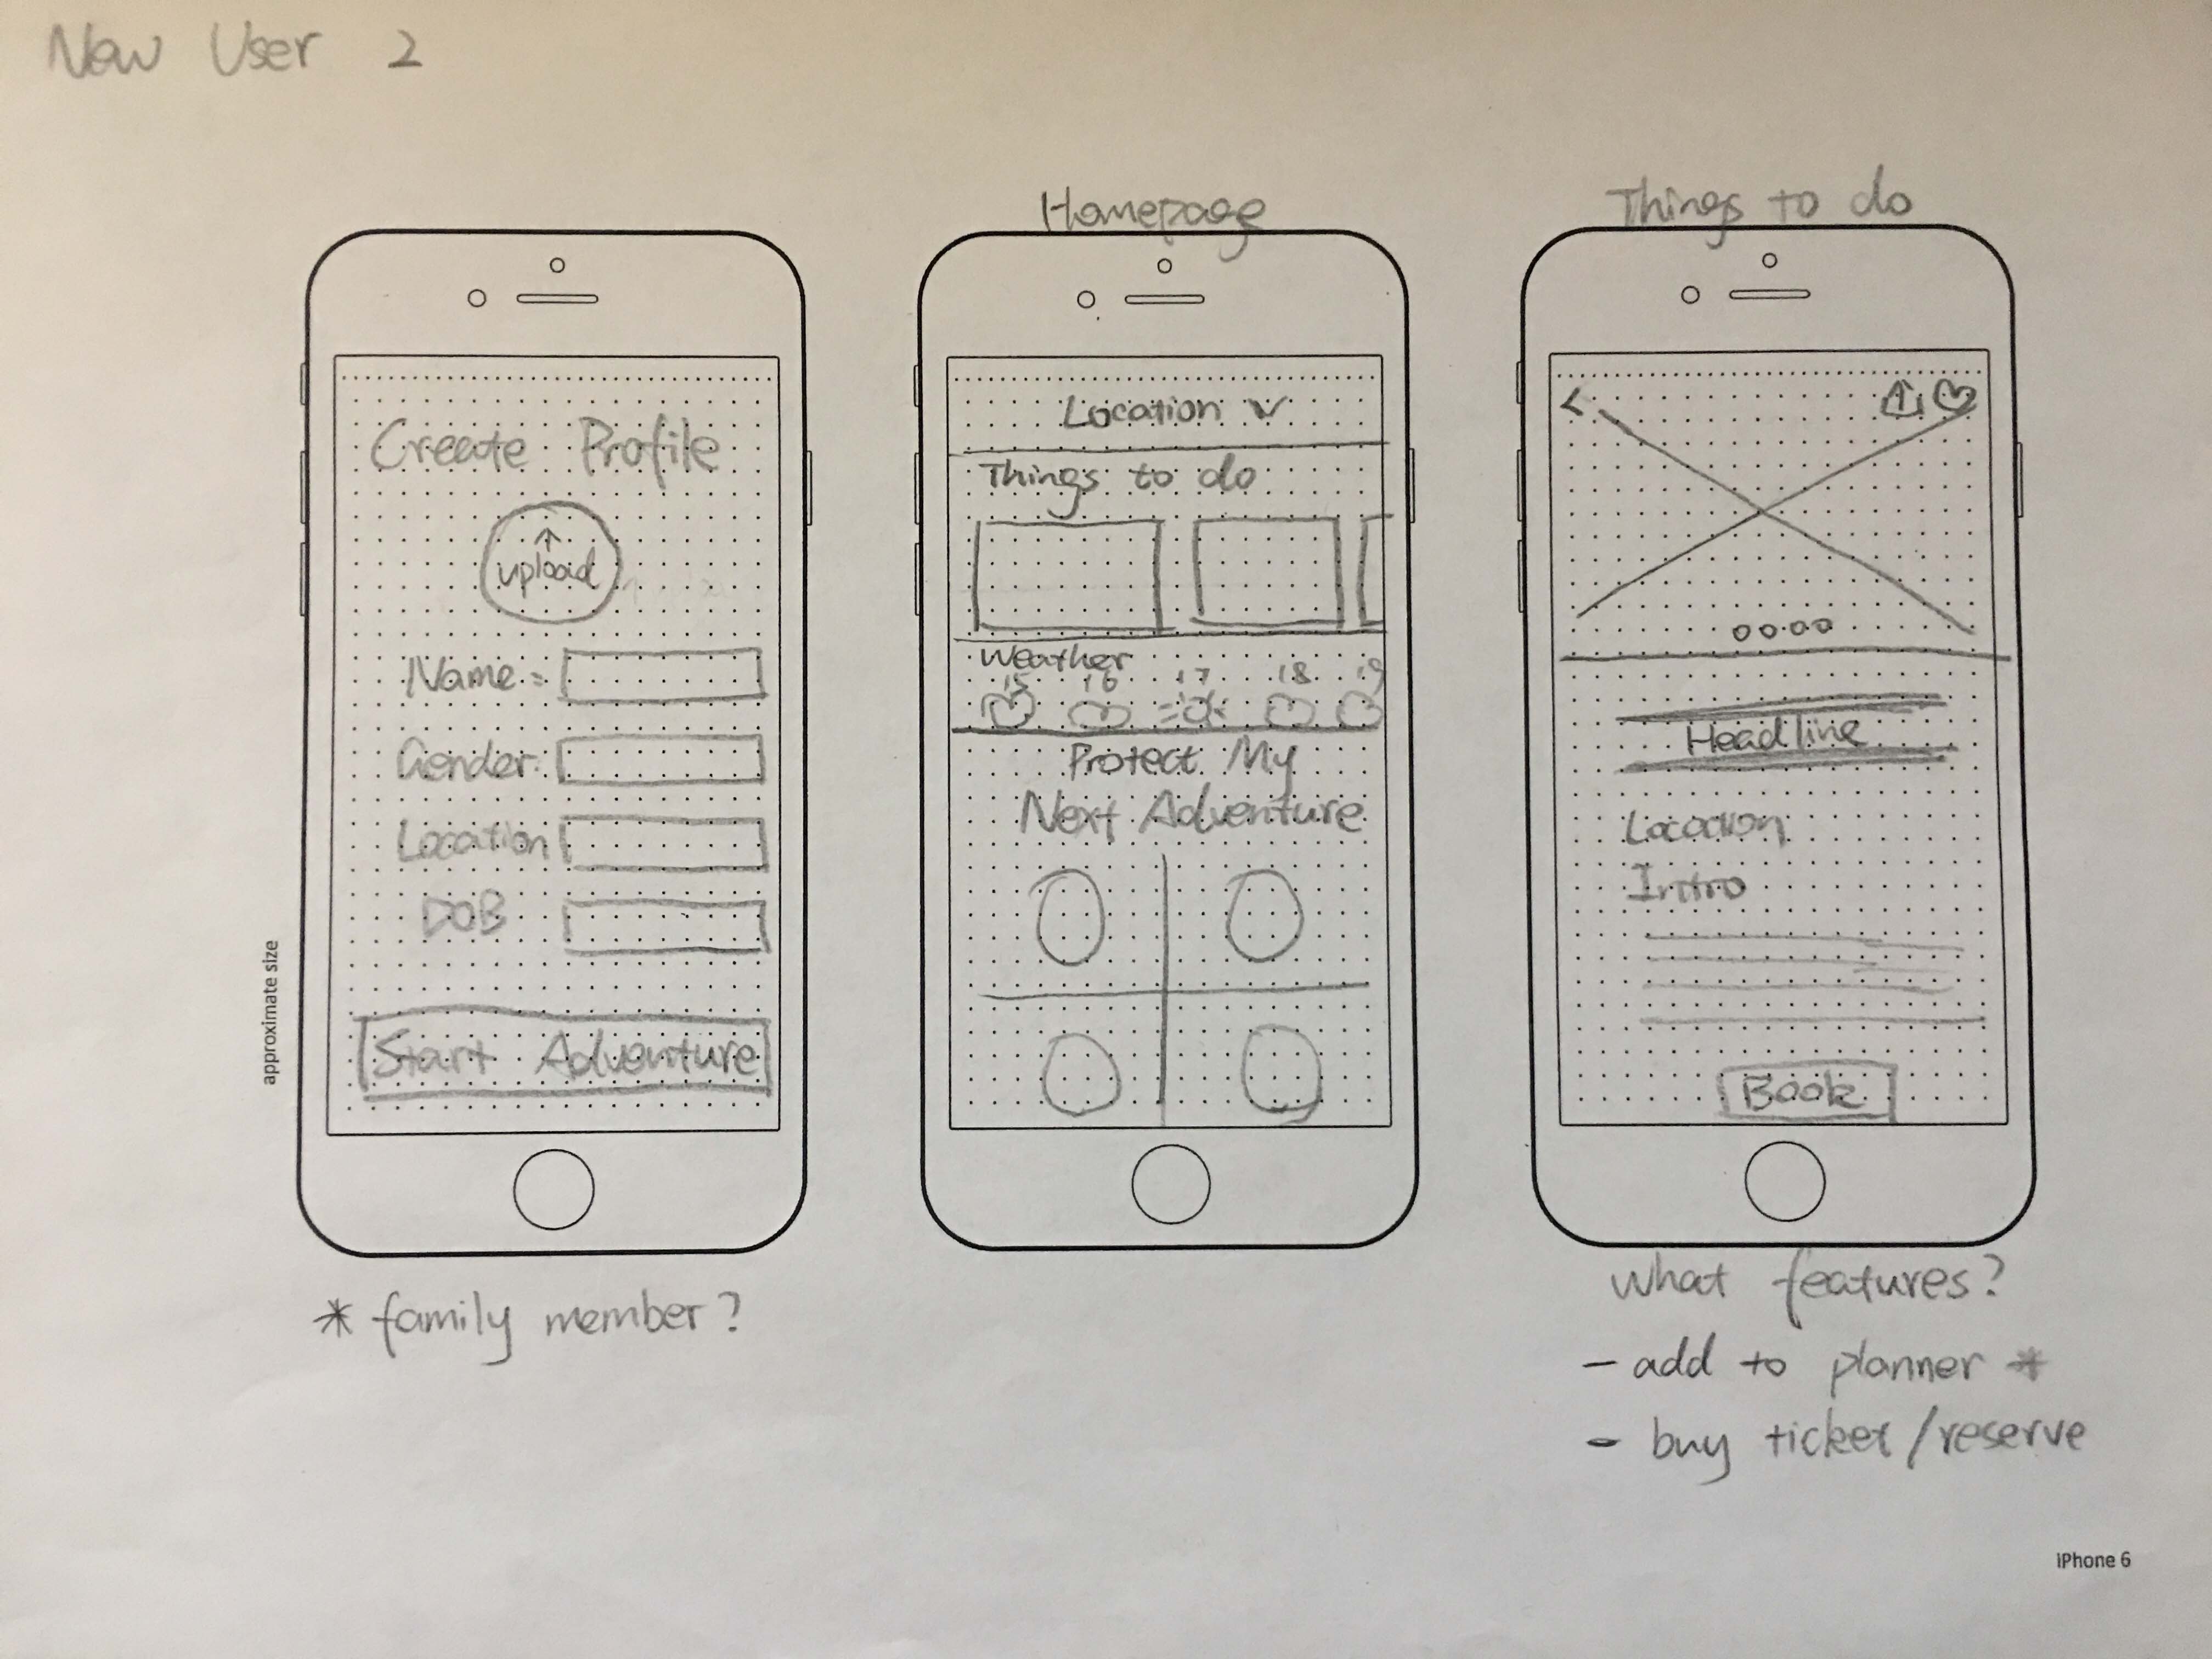 New User 2
Create Profile
upload
Name:
Gender:
Location
DOB
Start Adventure
* family member?
approximate size
Homepage
Location
Things to do
Weather
15 16 17 18 19
Protect My
Next Adventure
Things to do
Headline
Location
Intro
Book
What features?
- add to planner *
- buy ticket/reserve
iPhone 6